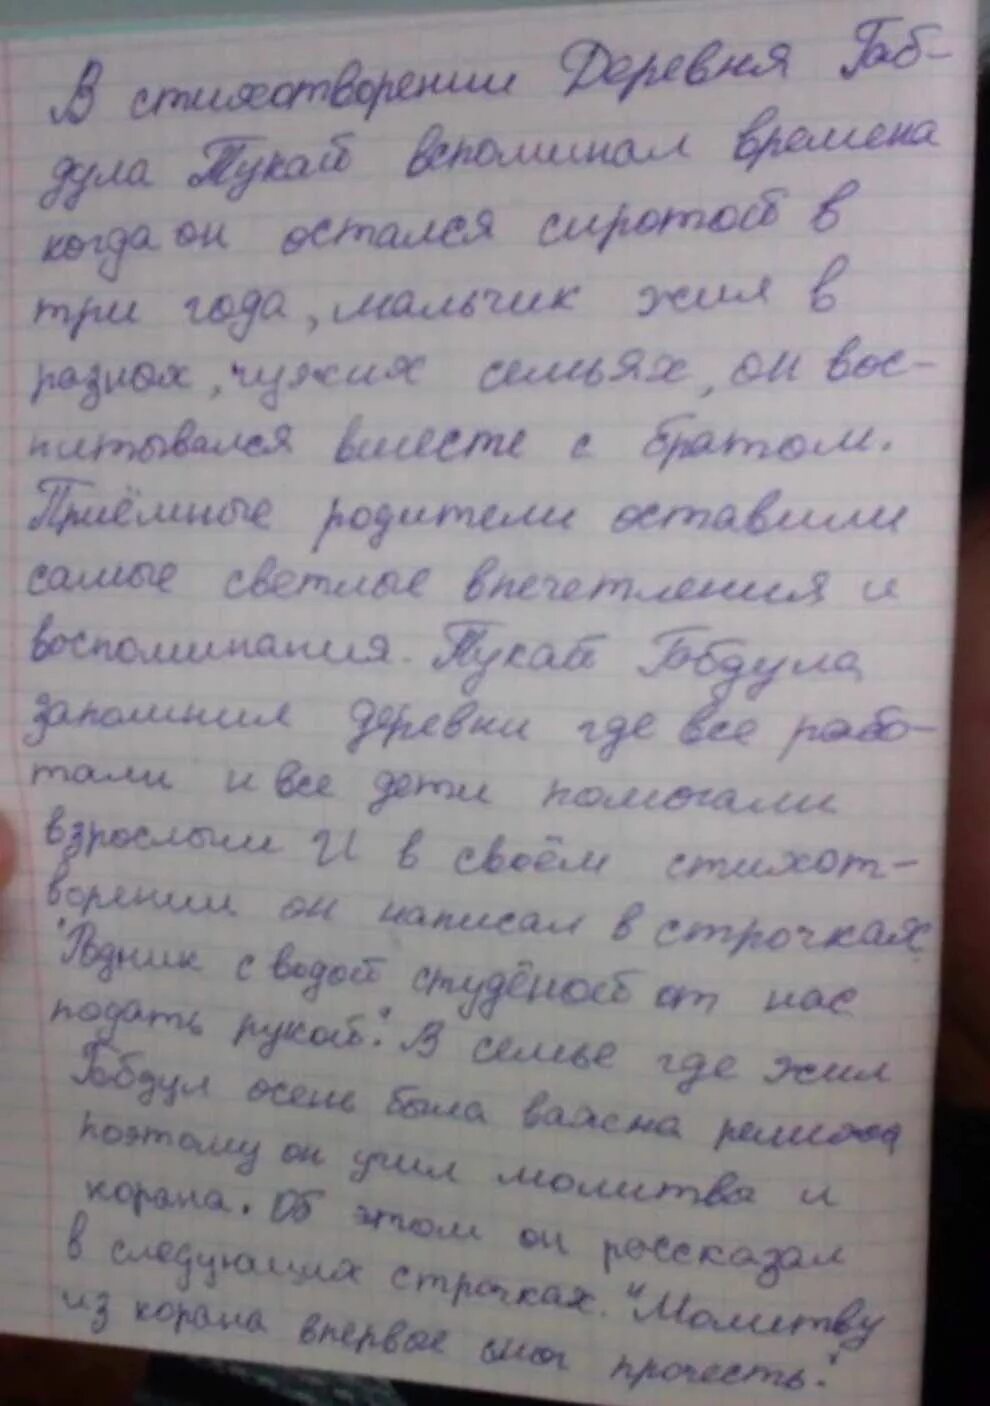 В стихотворении Деревня Габ-
дула Тукай вспоминал времена
когда он остался сиротой в
три года, мальчик жил в
разных, чужих семьях, он вос-
питывался вместе с братом.
Приёмные родители оставили
самые светлые впечетления и
воспоминания. Тукай Габдула
запомнил деревни где все рабо-
тали и все дети помогали
взрослым И в своём стихот-
ворении он написал в строчках
"Родник с водой студёной от нас
подать рукой". В семье где жил
Габдул осень была важна религия
поэтому он учил молитва и
корана. Об этом он россказал
в следующих строчках. "Молитву
из корана впервое смог прочесть."